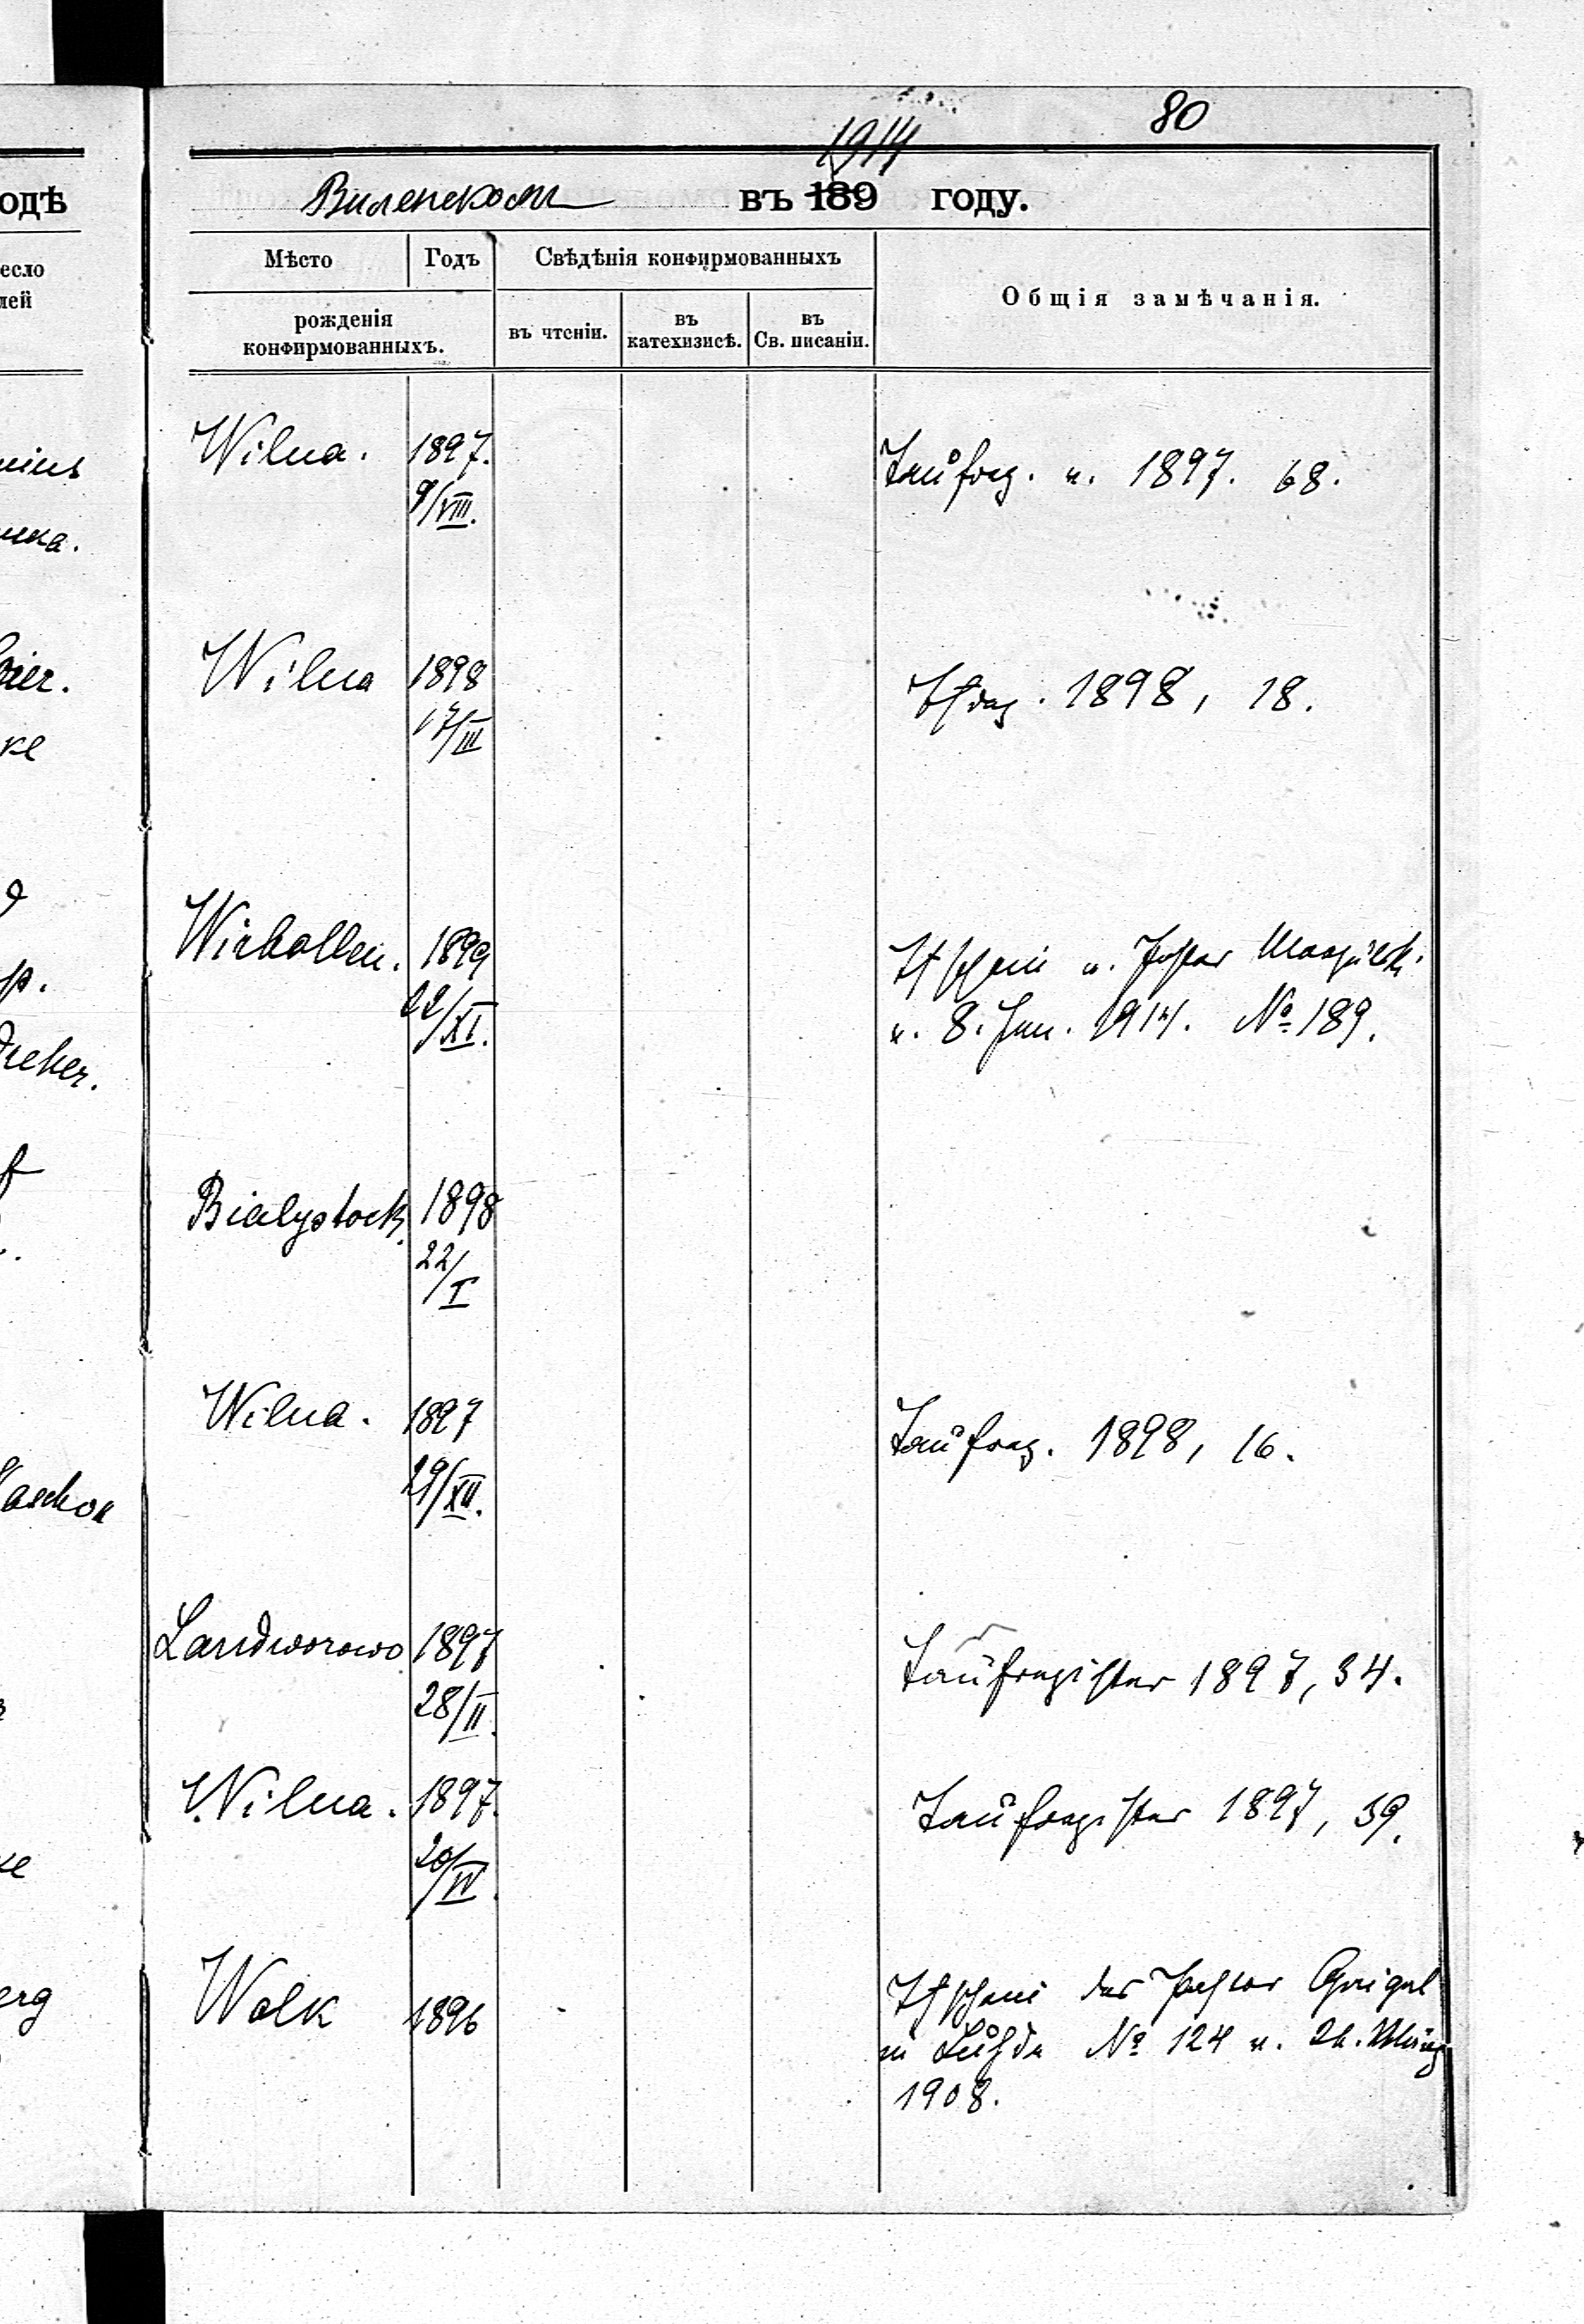 80
1914
одѣ
Виленскомъ въ 189 году.
есло
лей
Мѣсто Годъ Свѣдѣнія конфирмованныхъ Общія замѣчанія.
рожденія
конфирмованныхъ.
въ чтеніи. въ катехизисѣ. въ Св. писаніи.
Wilna. 1897. Taufreg. v. 1897. 68.
9/VIII.
Wilna 1898 Tfreg. 1898, 18.
17/III
Wirballen. 1899 Tfschein v. Pastor
22/XI. v. 8. Jan. 1914. № 189.
Bialystock. 1898
22/I
Wilna. 1897 Taufreg. 1898, 16.
29/XII.
Landworowo 1897 Taufregister 1897, 34.
28/II.
Wilna. 1897. Taufregister 1897, 39.
20/IV.
Walk 1896 Tfschein des Pastor
in № 124 v.
1908.